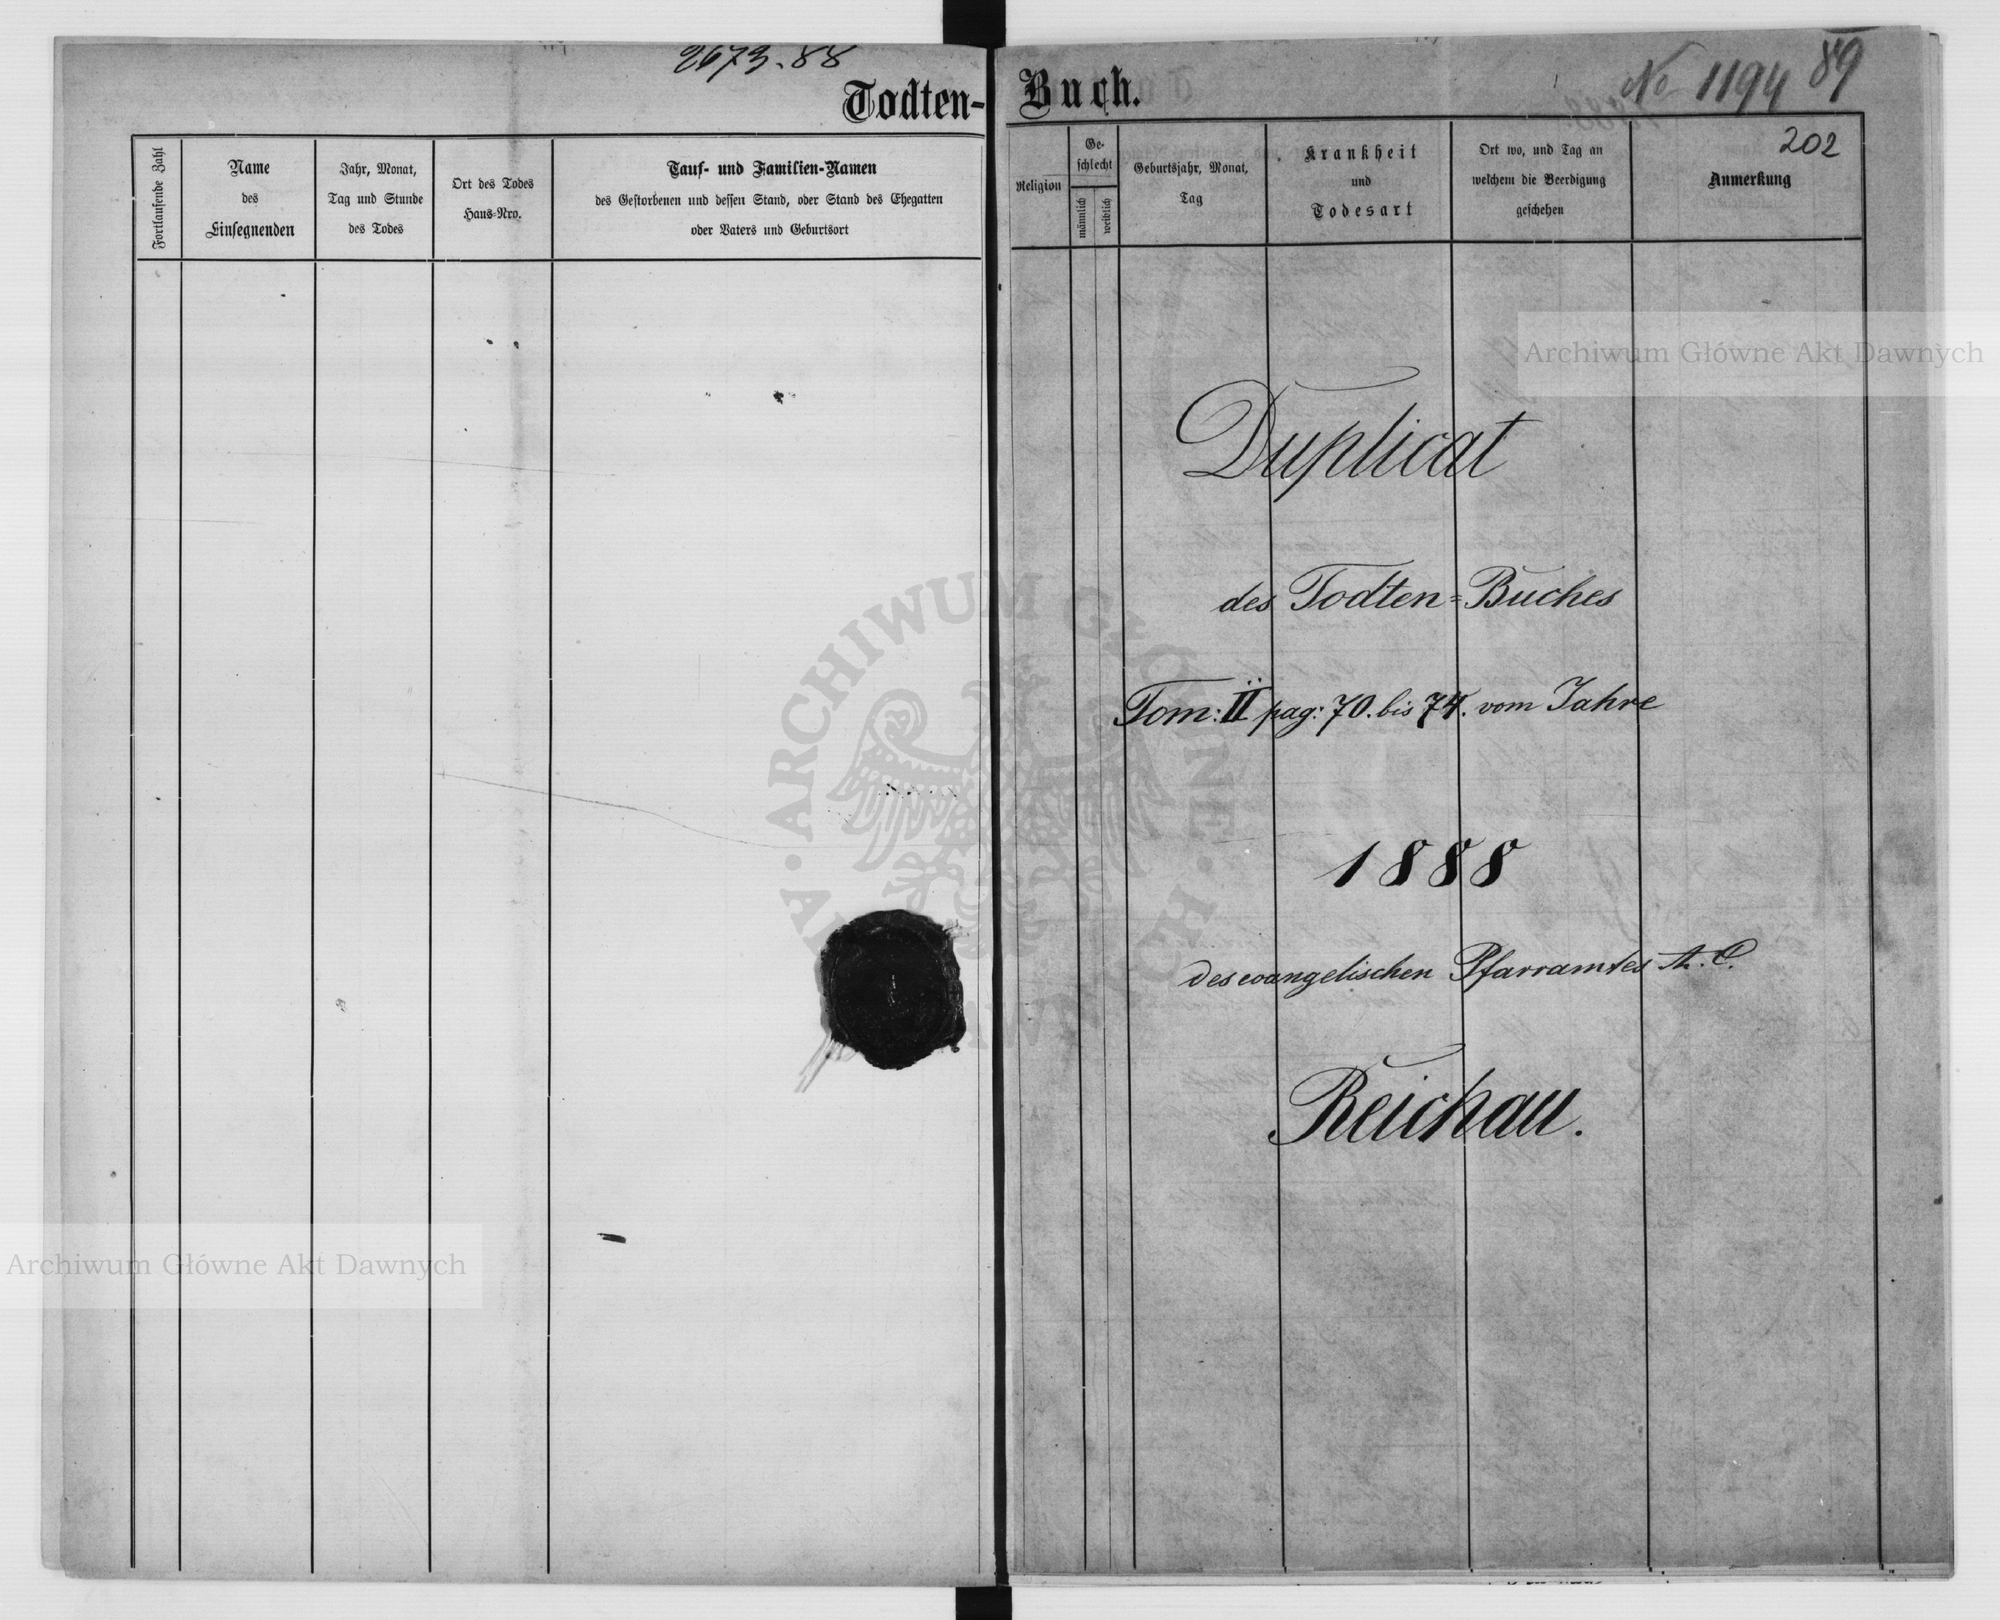 2673.88
Todten-Buch.
No 1194 89
202
Fortlaufende Zahl
Name
des
Einsegnenden
Jahr, Monat,
Tag und Stunde
des Todes
Ort des Todes
Haus-Nro.
Tauf- und Familien-Namen
des Gestorbenen und dessen Stand, oder Stand des Ehegatten
oder Vaters und Geburtsort
Religion
Ge-
schlecht
männlich
weiblich
Geburtsjahr, Monat,
Tag
Krankheit
und
Todesart
Ort wo, und Tag an
welchem die Beerdigung
geschehen
Anmerkung
Archiwum Główne Akt Dawnych
Duplicat
des Todten=Buches
Tom: II pag: 70. bis 74. vom Jahre
1888
des evangelischen Pfarramtes A. C.
Reichau.
Archiwum Główne Akt Dawnych